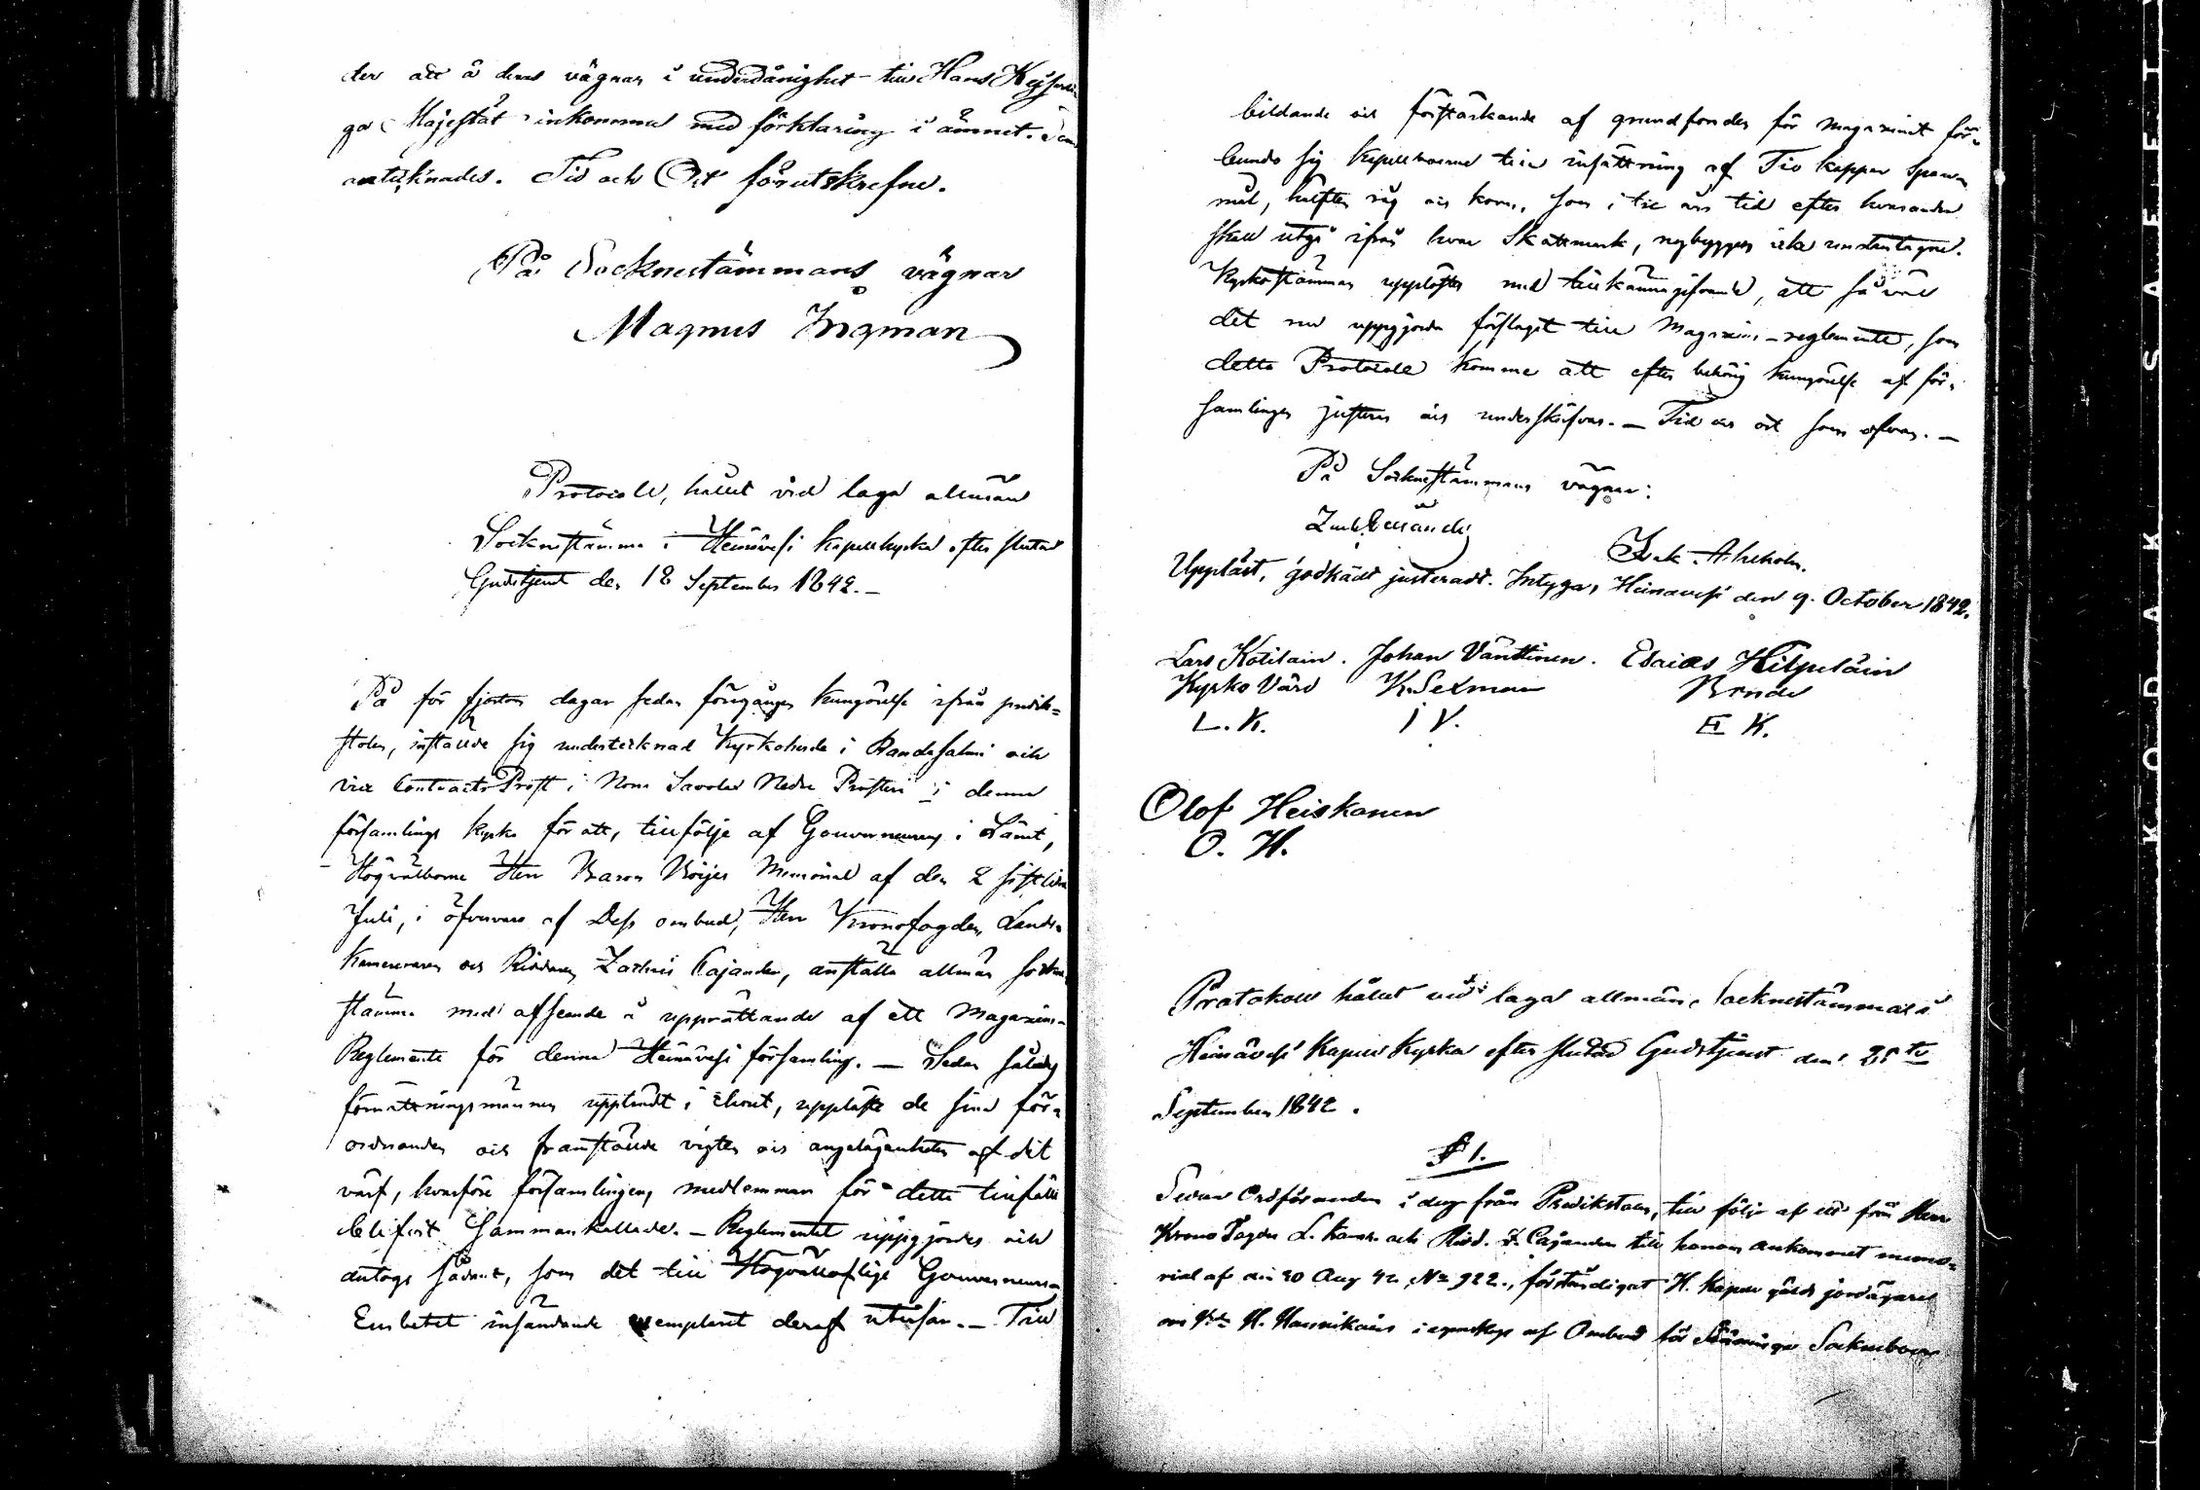 der att å deras vägnar i underdånighet till Hans Kejserli-
ga Majestät inkomma med förklaring i ämnet. Som
antecknades. Tid och Ort förutskrefne.
På Socknestämmans vägnar
Magnus Ingman
Protocoll, hållit vid laga allmän
Socknestämma i Heinävesi kapellkyrka efter slutad
Gudstjenst den 18 September 1842. –
På för fjorton dagar sedan föregången kungörelse ifrån predik-
stolen, inställde sig undertecknad Kyrkoherde i Randasalmi och
vice Contracts Prost i Norra Savolax Nedre Prosteri i denna
församlings kyrka för att, till följe af Gouverneurens i Länet,
Högvälborne Herr Baron Memorial af den 2 sistlidne
Juli, i öfvervaro af Dess ombud, Herr Kronofogden, Lands-
kamereraren och Riddaren Zachris Cajander, anställa allmän sockne-
stämma med afseende å upprättande af ett Magasins-
Reglemente för denna Heinävesi församling. – Sedan således
förrättningsmännen upptrådt i choret, upplästa de sina för-
ordnanden och framställde vigten och angelägenheten af det
värf, hvarföre församlingens medlemmar för detta tillfälle
blifvit sammankallade. – Reglementet uppgjordes och
antogs sådant, som det till Höglofliga Gouverneurs-
Embetet insändande exemplaret deraf utvisar. – Till
bildande och förstärkande af grundfonden för magasinet för-
bundo sig kapellboerne till insättning af Tio kappar spann-
mål, hälften råg och korn, som i tre års tid efter hvarandra
skall utgå ifrån hvar Skattemark, nybyggen icke undantagne.
Kyrkostämman upplöstes med tillkännagifvande, att så väl
det nu uppgjorda förslaget till Magasins-reglemente, som
detta Protocoll komme att efter behörig kungörelse af för-
samlingen justeras och underskrifvas. – Tid och ort som ofvan. –
På Socknestämmans vägnar:
Upplåst, godkändt justeradt. Intyga, Heinävesi den 9. October 1842.
Lars Kotilain. Johan Vänttinen. Esaias Hilpeläin
Kyrko Värd K. Sexman Bonde
L. K. I V. E K.
Olof Heiskanen
O. H.
Protokoll hållit vid laga allmän Socknestämma i
Heinävesi Kapell Kyrka efter slutad Gudstjenst den 25te
September 1842.
§ 1.
Sedan Ordföranden i dag från Predikstolen, till följe af ett från Herr
Krono Fogden L. Kamr. och Ridd. Z. Cajander till honom ankommet memo-
rial af den 20 Aug 42 No 922., förständigat H. Kapell gälds jordägare